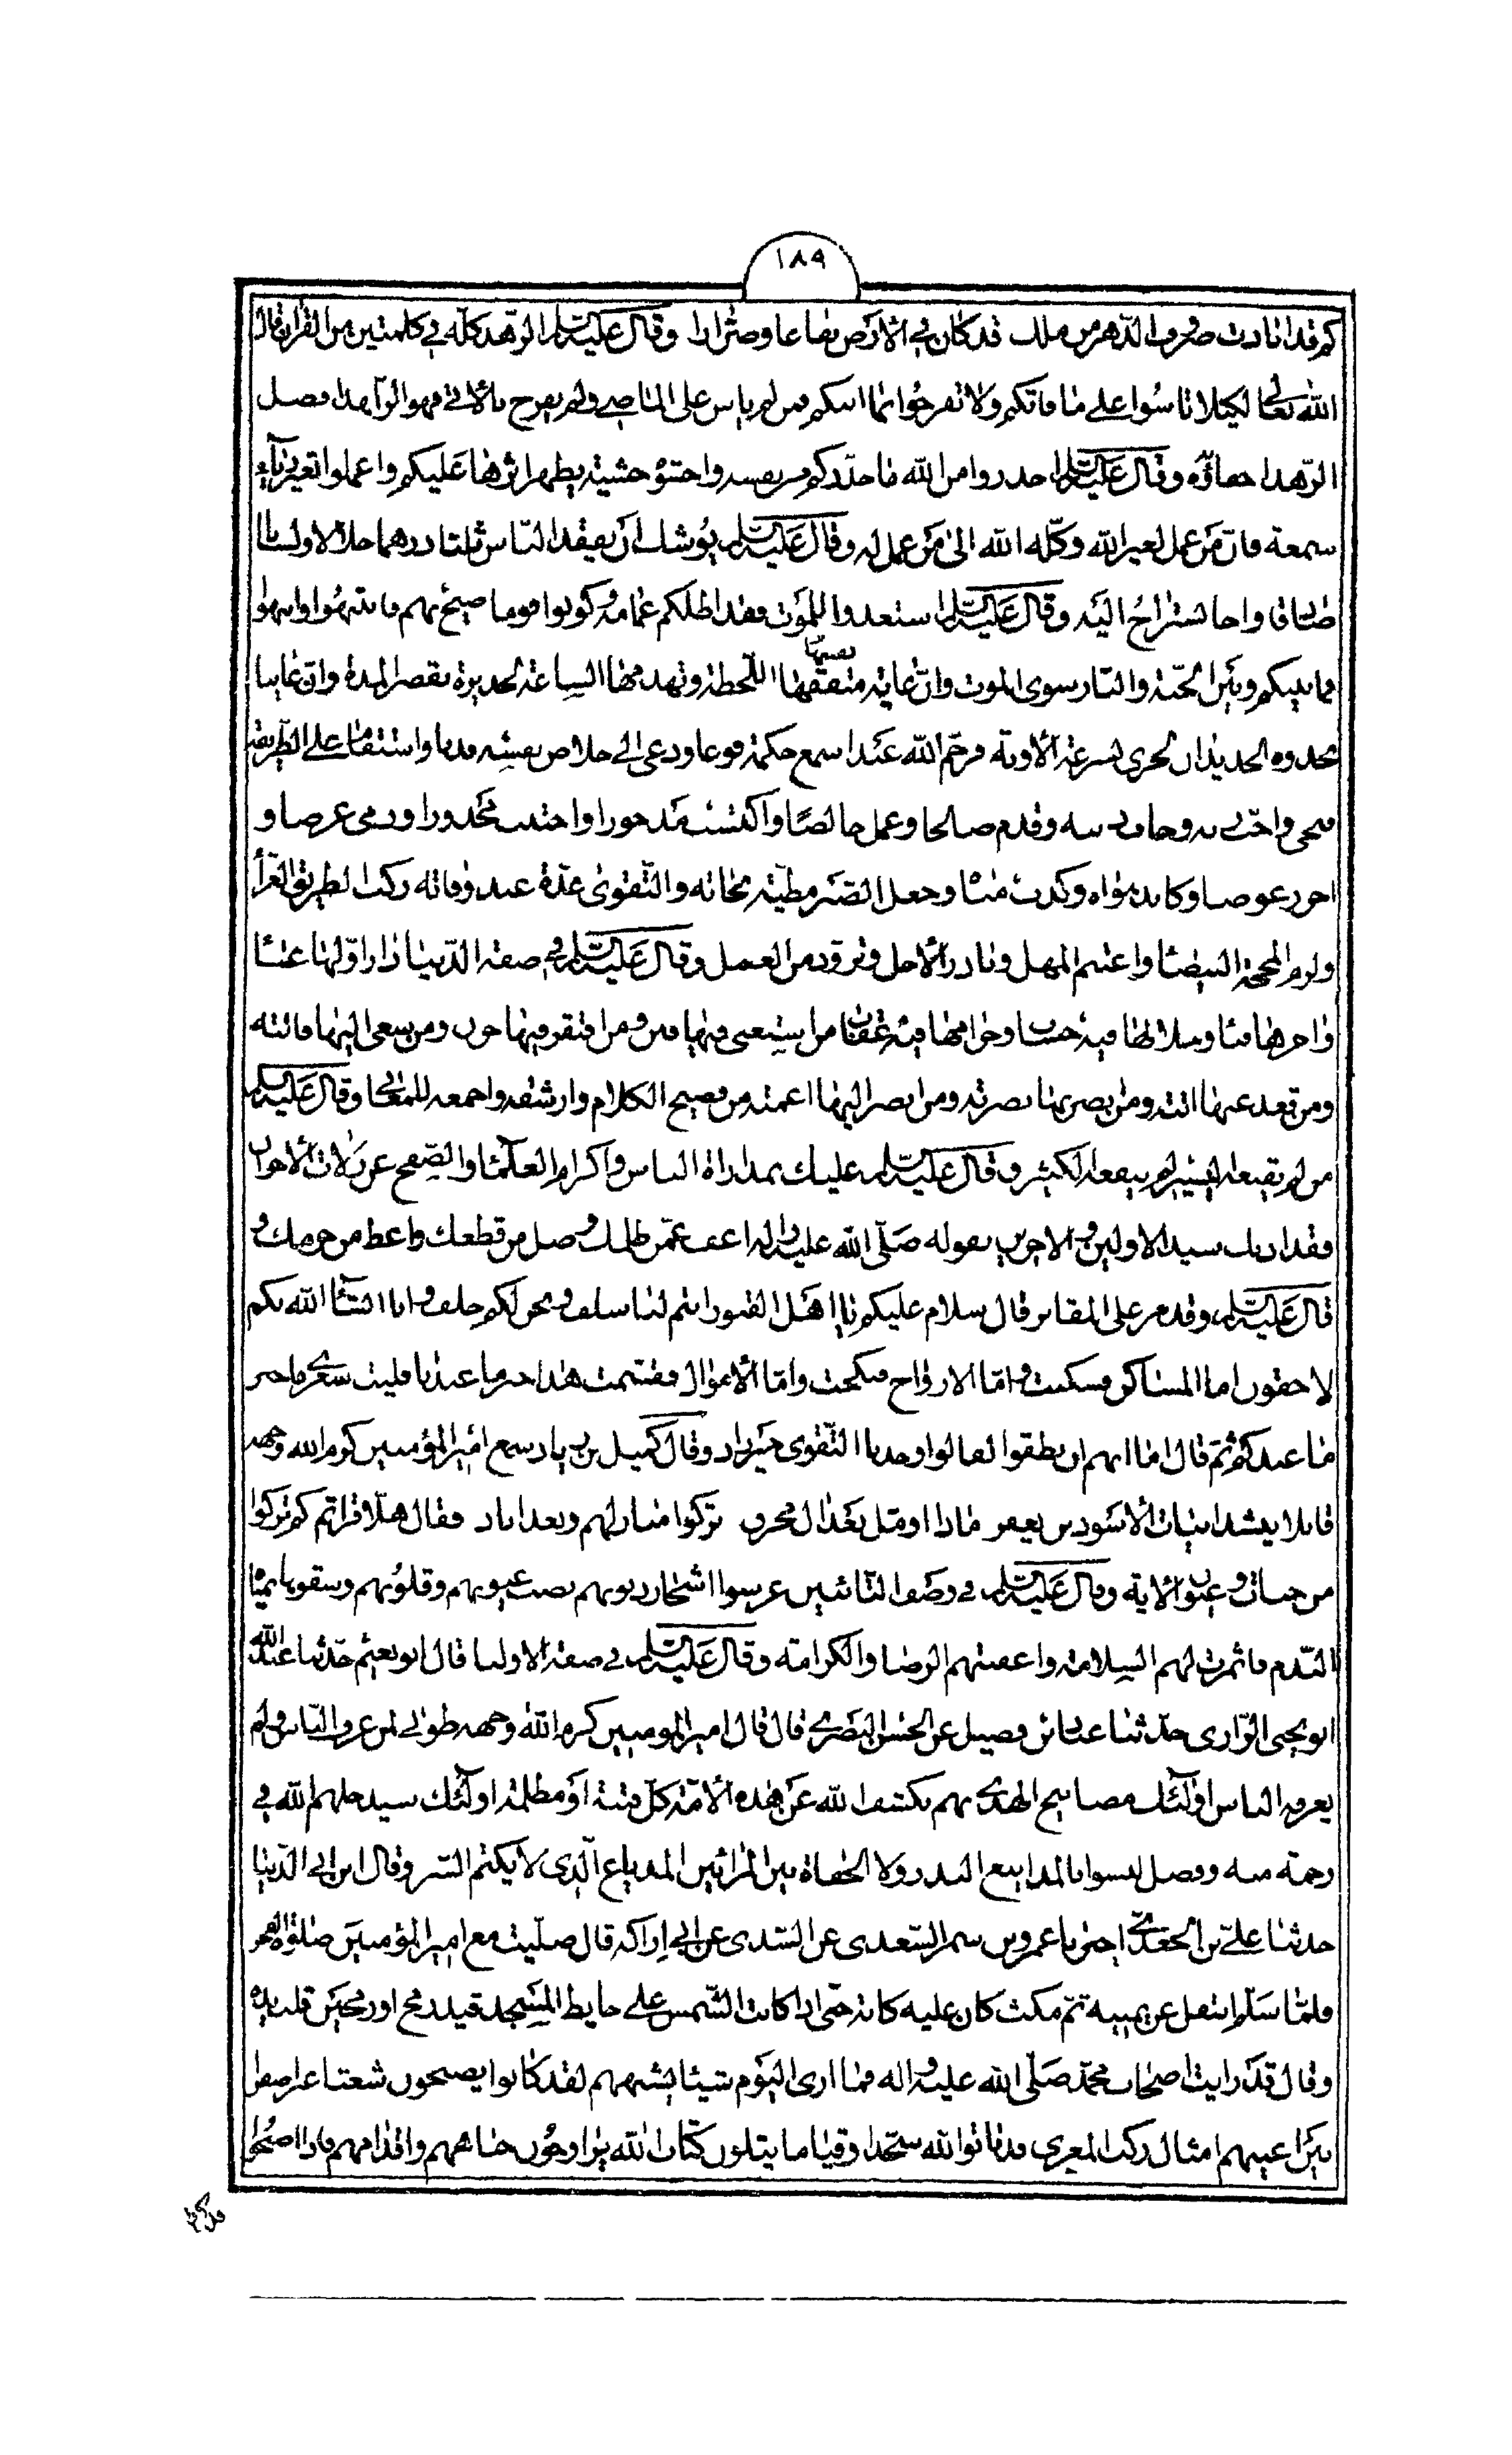 ١٨٩
كم قد ابادت صروف الدهر من ملك قد كان في الارض نفاعا وضرارا وقال عليه السلام الزهد كله في كلمتين من القران قال
الله تعالى لكيلا تاسوا على ما فاتكم ولا تفرحوا بما اتيكم ومن لم ياس على الماضي ولم يفرح بالاتي فهو الزاهد افضل
الزهد اخفاؤه وقال عليه السلام احذروا من الله ما حذركم من نفسه واخشوه خشية يظهر اثرها عليكم واعملوا بغير رياء
سمعة فان من عمل لغير الله وكله الله الى من عمل له وقال عليه السلام يوشك ان يفقد الناس ثلثا درهما حلالا ولسانا
صادقا واخا تستراح اليه وقال عليه السلام استعدوا للموت فقد اظلكم غمامه وكونوا قوما صيح بهم فانتبهوا وانتهوا
فما بينكم وبين الجنة والنار سوى الموت وان غاية تنقصها اللحظة وتهدمها الساعة لجديرة بقصر المدة وان غايبا
يحدوه الجديدان لحري بسرعة الاوبة فرحم الله عبدا سمع حكمة فوعا ودعى الى خلاص نفسه فدنا واستقام على الطريقة
فنجى واحب ربه وخاف ذنبه وقدم صالحا وعمل خالصا واكتسب مذخورا واجتنب محذورا ورمى غرضا و
احرز عوضا وكابد هواه وكذب مناه وجعل الصبر مطية نجاته والتقوى عدة عند وفاته ركب الطريق الغراء
ولزم المحجة البيضاء واغتنم المهل وبادر الاجل وتزود من العمل وقال عليه السلام في صفة الدنيا دار اولها عناء
واخرها فناء وحلالها فيه حساب وحرامها فيه عقاب من استغنى فيها فتن ومن افتقر فيها حزن ومن سعى اليها فاتته
ومن قعد عنها اتته ومن بصر بها بصرته ومن ابصر اليها اعمته من فصيح الكلام وارشقه واجمعه للمعاني وقال عليه السلام
من لم ينفعه اليسير لم ينفعه الكثير وقال عليه السلام عليك بمداراة الناس واكرام العلماء والصفح عن زلات الاخوان
فقد ادبك سيد الاولين والاخرين بقوله صلى الله عليه واله اعف عمن ظلمك وصل من قطعك واعط من حرمك و
قال عليه السلام وقد مر على المقابر قال سلام عليكم يا اهل القبور انتم لنا سلف ونحن لكم خلف وانا انشاء الله بكم
لاحقون اما المساكن فسكنت واما الازواج فنكحت واما الاموال فقسمت هذا خبر ما عندنا فليت شعري ما خبر
ما عندكم ثم قال اما انهم ان نطقوا لقالوا وجدنا التقوى خير زاد وقال كميل بن زياد سمع امير المؤمنين كرم الله وجهه
قائلا ينشد ابيات الاسود بن يعفر ماذا اومل بعد ال محرق تركوا منازلهم وبعد اياد فقال هلا قراتم كم تركوا
من جنات وعيون الاية وقال عليه السلام في وصف التائبين غرسوا اشجار ذنوبهم نصب عيونهم وقلوبهم وسقوها بمياه
الندم فاثمرت لهم السلامة واعقبتهم الرضا والكرامة وقال عليه السلام في صفة الاولياء قال ابو نعيم حدثنا عبد الله
ابو يحيى الرازي حدثنا عن ابن فضيل عن الحسن البصري قال قال امير المومنين كرم الله وجهه طوبى لمن عرف الناس ولم
يعرفه الناس اولئك مصابيح الهدى بهم يكشف الله عن هذه الامة كل فتنة او مظلمة اولئك سيدخلهم الله في
رحمة منه وفضل ليسوا بالمذاييع البذر ولا الجفاة بين المرائين المذياع الذي لا يكتم السر وقال ابن ابي الدنيا
حدثنا علي بن الجعدي اخبرنا عمرو بن سمر السعدي عن السدي عن ابي اراكة قال صليت مع امير المؤمنين صلوة الفجر
فلما سلم انتقل عن يمينه ثم مكث كان عليه كابة حتى اذا كانت الشمس على حايط المسجد قيد رمح او رمحين قلب يده
وقال قد رايت اصحاب محمد صلى الله عليه واله فما ارى اليوم شيئا يشبههم لقد كانوا يصبحون شعثا غبرا صفرا
بين اعينهم امثال ركب المعزى قد باتوا لله سجدا وقياما يتلون كتاب الله يراوحون جباههم واقدامهم فاذا اصبحوا